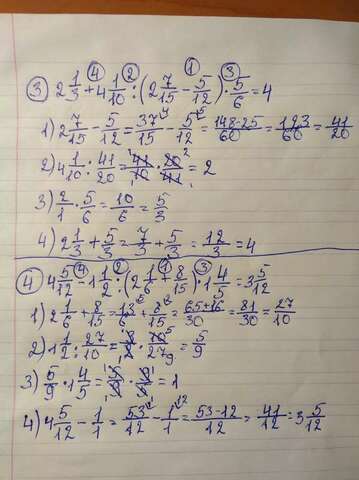 ③ 2 1/3 + 4 1/10 : (2 7/15 − 5/12) · 5/6 = 4
④ ② ① ③
1) 2 7/15 − 5/12 = 37/15 ⁴ − 5/12 ⁵ = 148−25/60 = 123/60 = 41/20
2) 4 1/10 : 41/20 = 41/10 · 20/41 = 2
3) 2/1 · 5/6 = 10/6 = 5/3
4) 2 1/3 + 5/3 = 7/3 + 5/3 = 12/3 = 4
④ 4 5/12 − 1 1/2 : (2 1/6 + 8/15) · 1 4/5 = 3 5/12
④ ② ① ③
1) 2 1/6 + 8/15 = 13/6 ⁵ + 8/15 ² = 65+16/30 = 81/30 = 27/10
2) 1 1/2 : 27/10 = 3/2 · 10/27 = 5/9
3) 5/9 · 1 4/5 = 5/9 · 9/5 = 1
4) 4 5/12 − 1/1 = 53/12 − 1/1 ¹² = 53−12/12 = 41/12 = 3 5/12